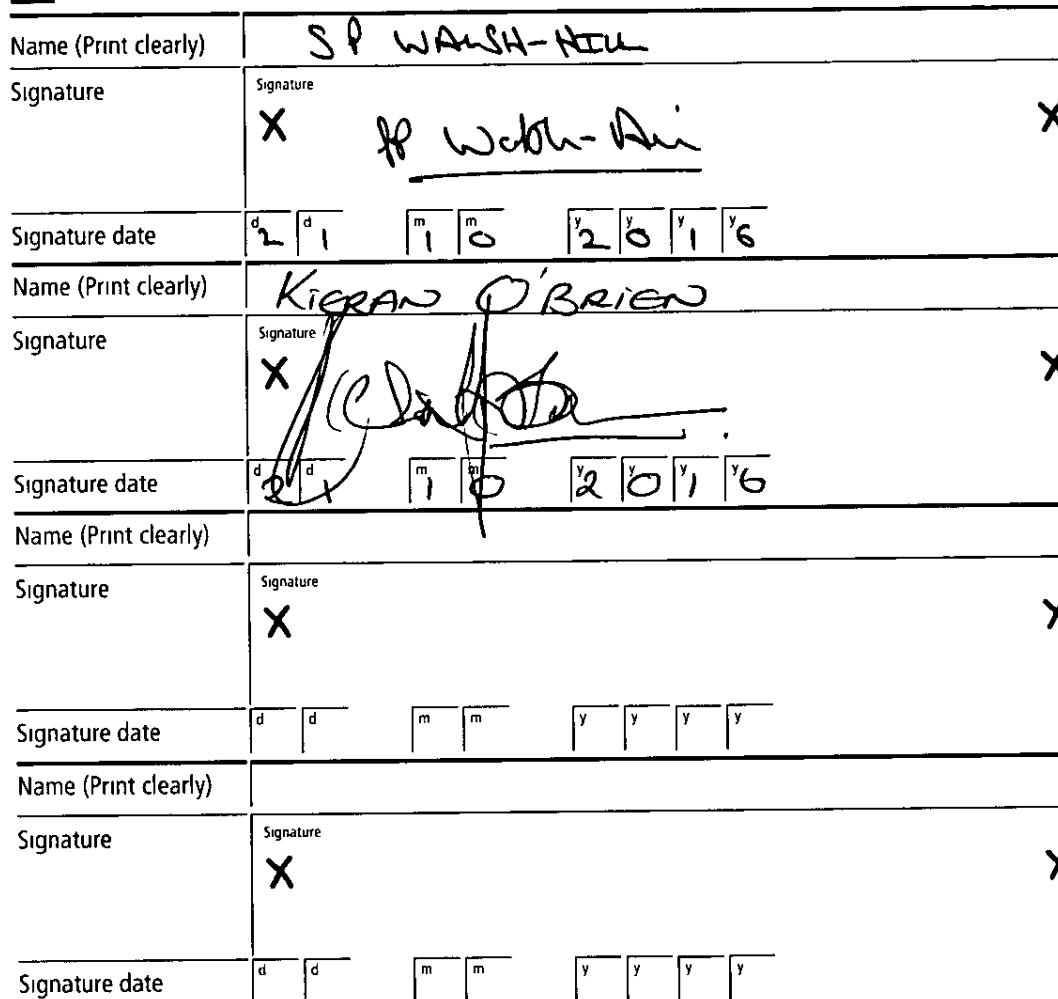 Name (Print clearly) SP WALSH-HILL
Signature
Signature
X X
SP Walsh-Hill
Signature date d2 d1 m1 m0 y2 y0 y1 y6
Name (Print clearly) KIERAN O'BRIEN
Signature
Signature
X X
Signature date d2 d1 m1 m0 y2 y0 y1 y6
Name (Print clearly)
Signature
Signature
X X
Signature date d d m m y y y y
Name (Print clearly)
Signature
Signature
X X
Signature date d d m m y y y y